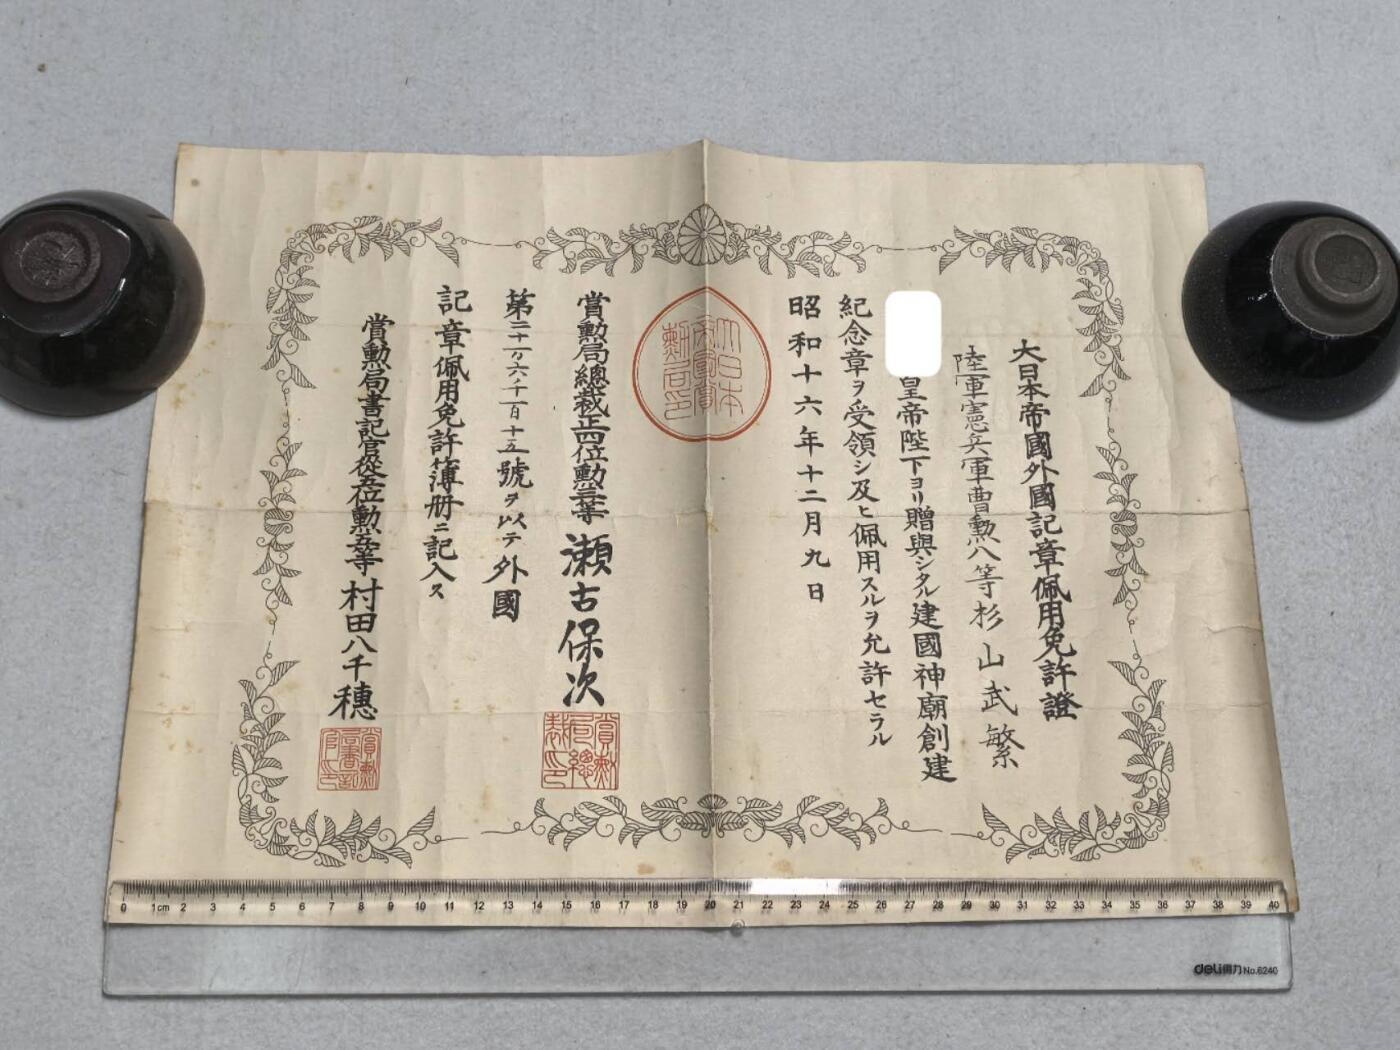 大日本帝國外國記章佩用免許證
陸軍憲兵軍曹勲八等杉山武繁
皇帝陛下ヨリ贈與シタル建國神廟創建
紀念章ヲ受領シ及ヒ佩用スルヲ允許セラル
昭和十六年十二月九日
大日本
帝國賞
勲局印
賞勲局總裁正四位勲二等瀬古保次
賞勲
局總
裁印
號ヲ以テ外國
記章佩用免許簿冊ニ記入ス
賞勲局書記官從五位勲五等村田八千穗
賞勲
局書記
官印
0 1cm 2 3 4 5 6 7 8 9 10 11 12 13 14 15 16 17 18 19 20 21 22 23 24 25 26 27 28 29 30 31 32 33 34 35 36 37 38 39 40
deli得力 No.6240